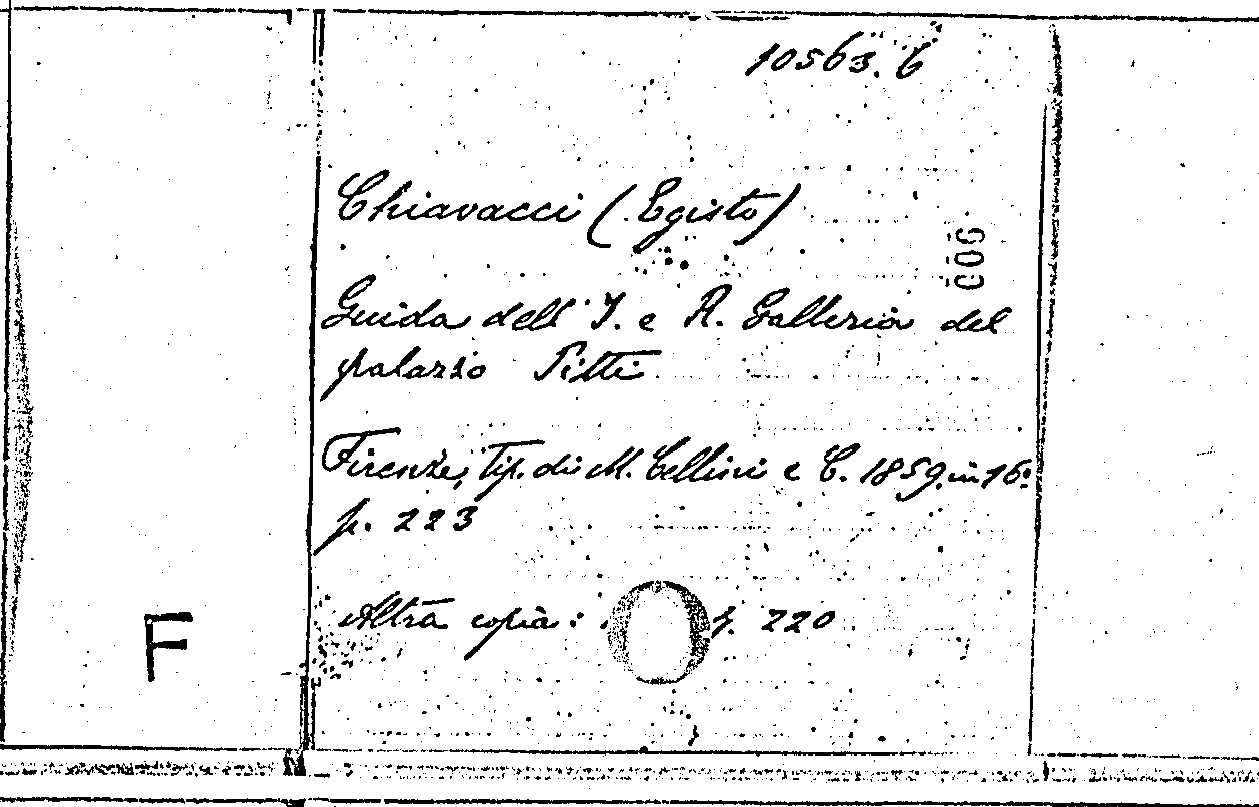 10563. 6
Chiavacci (Egisto)
900
Guida dell' I. e R. Galleria del
palazzo Pitti
Firenze, Tip. di M. Cellini e C. 1859. in 16º
p. 223
Altra copia: p. 220
F